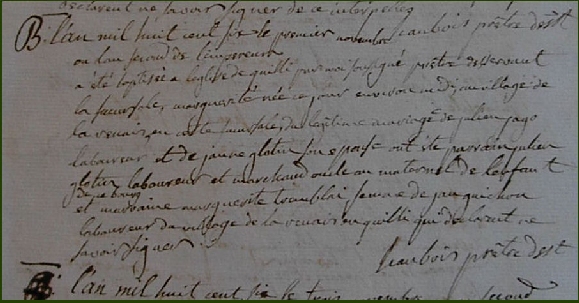 declarent ne savoir signer de ce interpelles
B. L'an mil huit cent six le premier novembre Jeaubois prêtre desst
ou l'an second de l'empereur
a été baptisée a l'eglise de guilli par moi soussigné prêtre desservant
la succursale, marguerite née ce jour environ midi au village de
la venaie, en cette succursale, du legitime mariage de julien jago
laboureur et de jeane glotin son epouse ont ete parrain julien
glotin laboureur et marchand oncle au maternel de l'enfant
de ce bourg
et marraine marguerite tramblai femme de jan guichon
laboureur du village de la venaie en guilli qui declarent ne
savoir signer.
Jeaubois prêtre desst
L'an mil huit cent six le trois novembre second